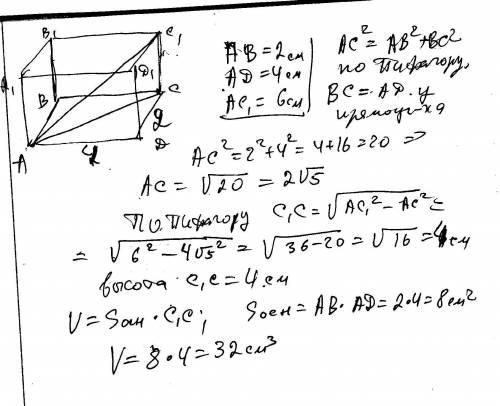 B₁
C₁
A₁
D₁
B
C
2
A
4
D
AB = 2 см
AD = 4 см
AC₁ = 6 см
AC² = AB² + BC²
по Пифагору,
BC = AD. у
прямоуг-ка
AC² = 2² + 4² = 4 + 16 = 20 ⇒
AC = √20 = 2√5
По Пифагору C₁C = √AC₁² − AC² =
= √6² − 4√5² = √36−20 = √16 = 4 см
высота C₁C = 4 см
V = Sосн · C₁C; Sосн = AB · AD = 2·4 = 8 см²
V = 8 · 4 = 32 см³